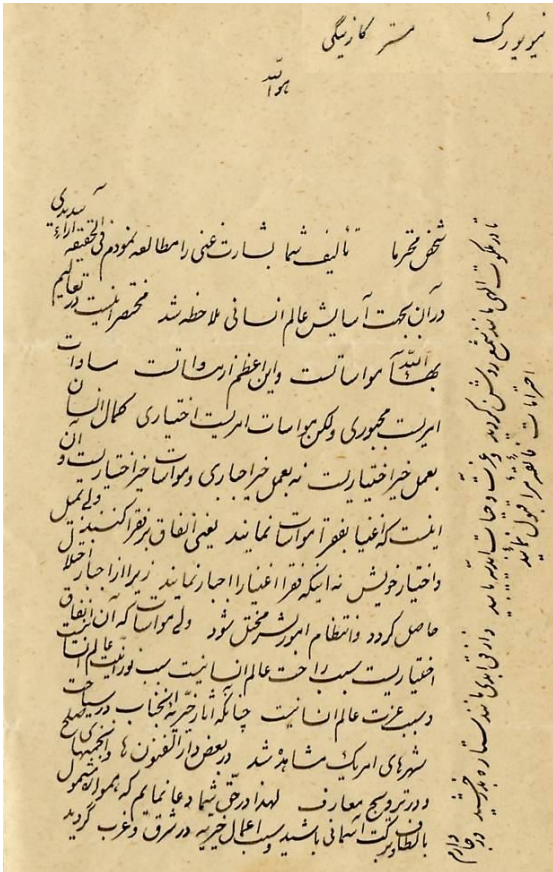 نیویورک مستر کارنیگی
هوالله
شخص محترما تألیف شما بشارت غنی را مطالعه نمودم فی الحقیقه آراء سدیدی
در آن بجهت آسایش عالم انسانی ملاحظه شد مختصر اینست در تعالیم
بهاءالله مواساتست و این اعظم از مساواتست مساوات
امریست مجبوری ولکن مواسات امریست اختیاری کمال انسان
بعمل خیر اختیاریست نه بعمل خیر اجباری و مواسات خیر اختیاریست و آن
اینست که اغنیا بفقرا مواسات نمایند یعنی انفاق بر فقرا کنند ولی بمیل
و اختیار خویش نه اینکه فقرا اغنیا را اجبار نمایند زیرا از اجبار اختلال
حاصل گردد و انتظام امور بشر مختل شود ولی مواسات که آن انفاق
اختیاریست سبب راحت عالم انسانیست سبب نورانیت عالم انسانیست
و سبب عزت عالم انسانیت چنانکه آثار خیریه آنجناب در سیاحت
شهرهای امریک مشاهده شد در بعض دارالفنون ها و انجمنهای صلح
و در ترویج معارف لهذا در حق شما دعا نمایم که همواره مشمول
بالطاف و برکت آسمانی باشید و سبب اعمال خیریه در شرق و غرب گردید
تا در ملکوت الهی مانند شمع روشن گردید و عزت و حیات ابدیه یابید و از افق ابدی مانند ستاره بدرخشید در خاتمه دارم
احترامات فائقه مرا قبول نمائید